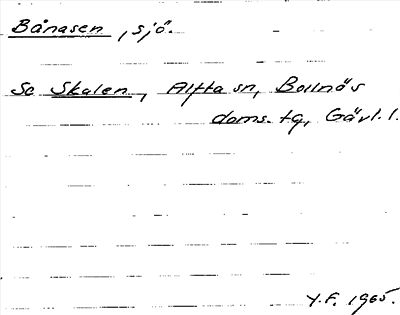 Bånasen, sjö.
Se Skalen, Alfta sn, Bollnäs
doms. tg, Gävl. l.
Y.F. 1965.